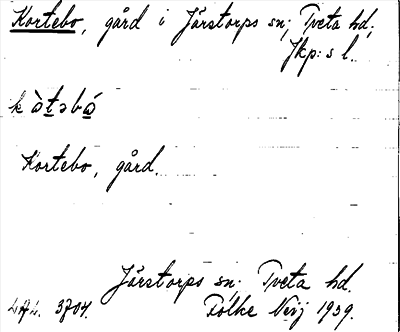 Kortebo, gård i Järstorps sn; Tveta hd;
Jkp:s l.
kàtəbá
Kortebo, gård.
Järstorps sn; Tveta hd.
3704. Folke Neij 1939.